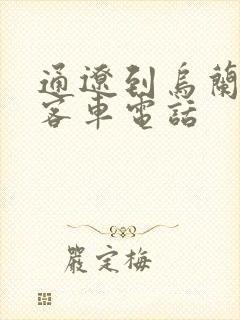 通遼到烏蘭
客車電話
嚴定梅